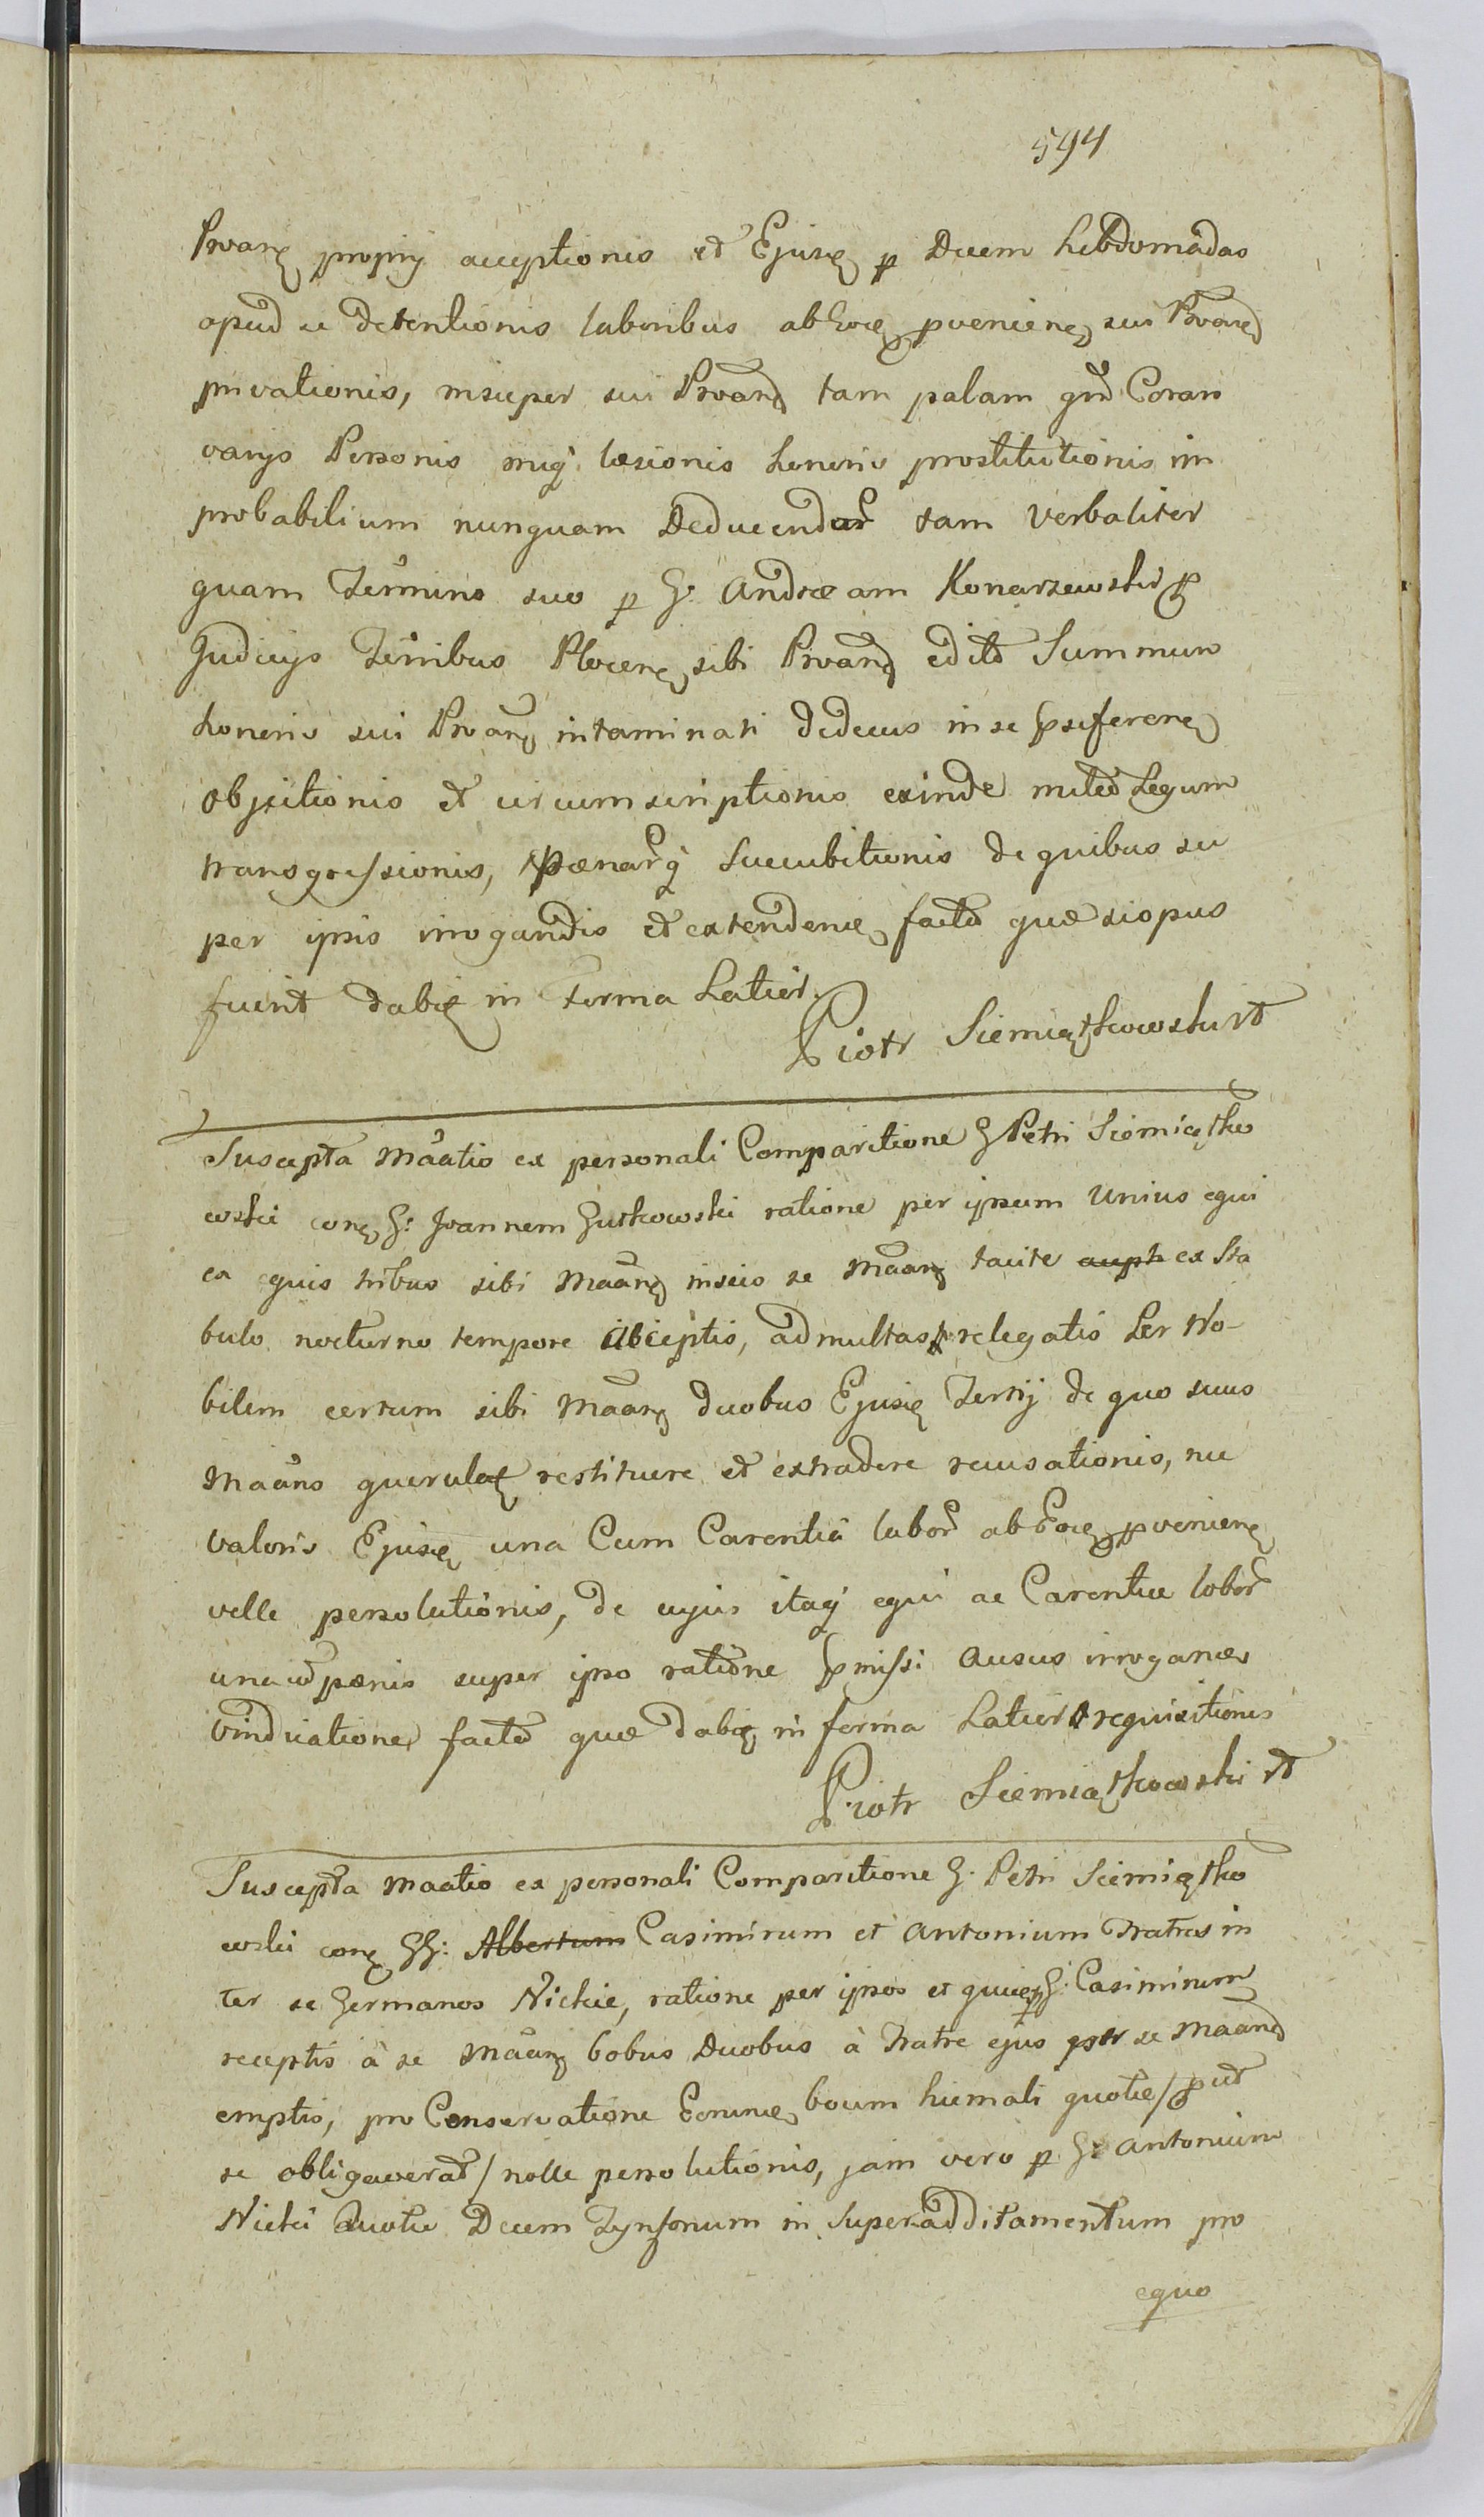 594
Proanę proprij acceptionis et Ejusę p Decem hebdomadas
apud se detentionis laboribus ab Eoę pvenienę sui Proanę
privationis, insuper sui Proanę tam palam qnd Coram
varijs Personis miq laesionis honoris prostitutionis im
probabilium nunquam Deducendar tam Verbaliter
quam Termino suo p G: Andraeam Konarzewski p
Judicijs Terribus Plocenę sibi Proanę edito Summum
honoris sui Proanę intaminati dedecus in se pseferenę
objectionis et circumscriptionis exinde multo Legum
transgressionis, paenarq Succubitionis de quibus su
per ipsis irrogandis et extendenę facto quae si opus
fuerit dabię in Forma Latiori.
Piotr Siemiątkowski rd
Suscepta Maatio ex personali Comparitione G Petri Siemiątko
wski conę G: Joannem Gutkowski ratione per ipsum Unius equi
ex equis tribus sibi Maanę inscio se Maanę tacite accpt ex Sta
bulo nocturno tempore abceptis, ad multas relegatis Per No-
bilem certum sibi Maanę duobus Ejusę Tertij de quo suus
Maans querulaę restituere et extradere recusationis, nec
valoris Ejusę una Cum Carentia labor ab Eoę pvenienę
velle persolutionis, de cujus itaq equi ac Carentiae labor
una cu paenis super ipso ratione pmissi Ausus irroganę
vindicatione facto quae dabię in forma Latiori requisitionis
Piotr Siemiątkowski rd
Suscepta Maatio ex personali Comparitione G. Petri Siemiątko
wski conę GG: Albertum Casimirum et Antonium Fratres in
ter se Germanos Nickie, ratione per ipsos et quidem p G: Casimirum
receptis à se Maanę bobus Duobus à Fratre ejus pstr se Maanę
emptis, pro Conservatione Eorumę boum hiemali quotae / p ut
se obligaverat / nolle persolutionis, jam vero p G: Antonium
Nicki Quotae Decem Tynfonum in Superadditamentum pro
equo